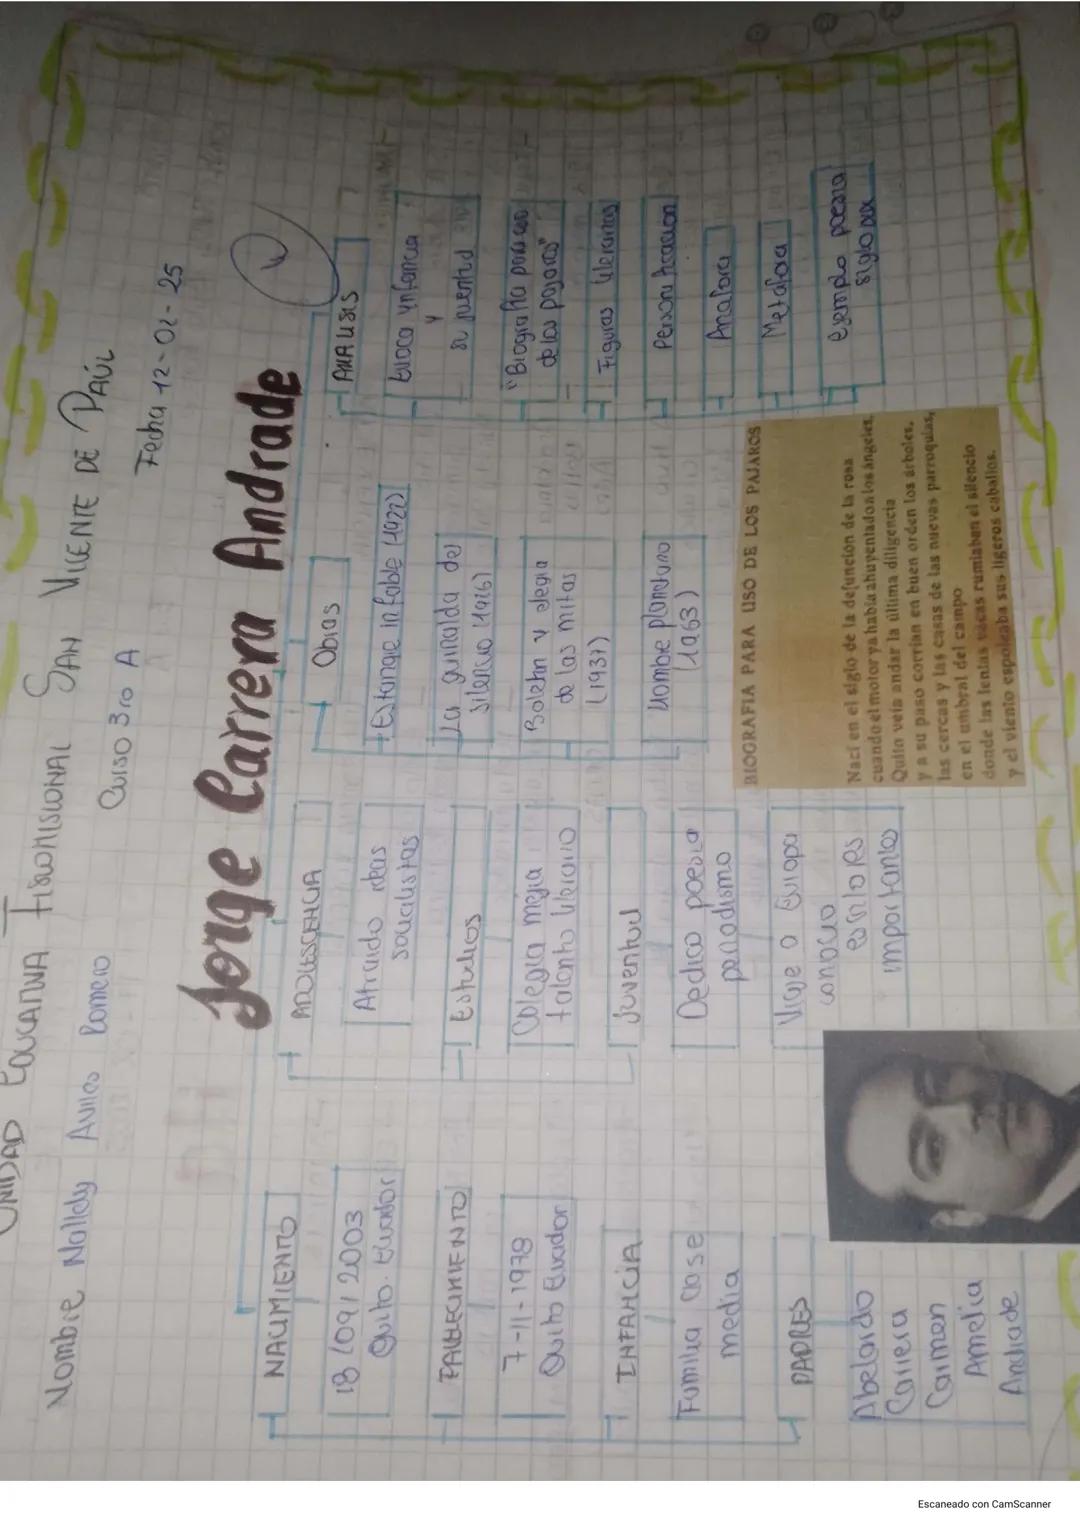 UNIDAD EDUCATIVA FISCOMISIONAL SAN VICENTE DE PAÚL
Nombre Nallely Aviles Romero
Curso 3ro A
Fecha 12-02-25
Jorge Carrera Andrade
NACIMIENTO
18/09/2003
Quito. Ecuador
FALLECIMIENTO
7-11-1978
Quito Ecuador
INFANCIA
Familia clase
media
PADRES
Abelardo
Carrera
Carmen
Amelia
Andrade
ADOLESCENCIA
Atraido ideas
socialistas
Estudios
Colegia mejia
talento literario
Juventud
Dedico poesia
periodismo
Viaje a Europa
conocio
escritores
importantes
Obras
Estanque inefable (1922)
La guinalda del
silencio (1926)
Boletin y elegia
de las mitas
(1937)
Hombre planetario
(1963)
ANALISIS
Evoca infancia
y
su juventud
"Biografia para uso
de los pajaros"
Figuras literarias
Personificacion
Anafora
Metafora
ejemplo poesia
siglo XX
BIOGRAFIA PARA USO DE LOS PAJAROS
Nací en el siglo de la defunción de la rosa
cuando el motor ya había ahuyentado a los ángeles.
Quito veía andar la última diligencia
y a su paso corrían en buen orden los árboles,
las cercas y las casas de las nuevas parroquias,
en el umbral del campo
donde las lentas vacas rumiaban el silencio
y el viento espoleaba sus ligeros caballos.
Escaneado con CamScanner